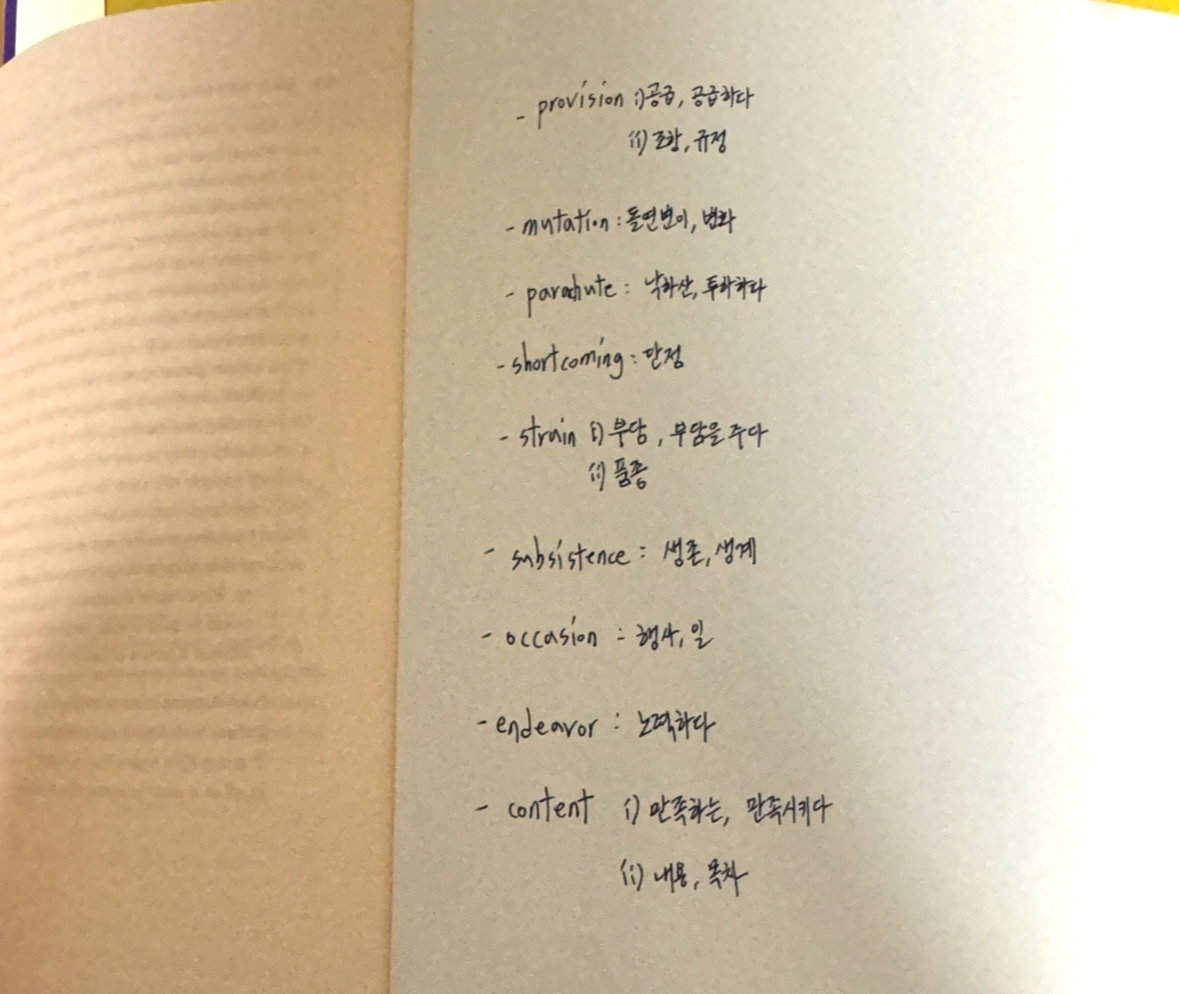 - provision i) 공급, 공급하다
ii) 조항, 규정
- mutation : 돌연변이, 변화
- parachute : 낙하산, 투하하다
- shortcoming : 단점
- strain i) 부담, 부담을 주다
ii) 품종
- subsistence : 생존, 생계
- occasion : 행사, 일
- endeavor : 노력하다
- content i) 만족하는, 만족시키다
ii) 내용, 목차